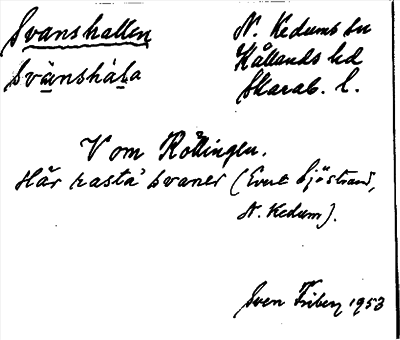 Svanshallen
N. Kedums sn
Svänshála
Kållands hd
Skarab. l.
V om Rollingen.
Här rasta svaner (Evert Sjöstrand,
N. Kedum).
Sven Friberg 1953